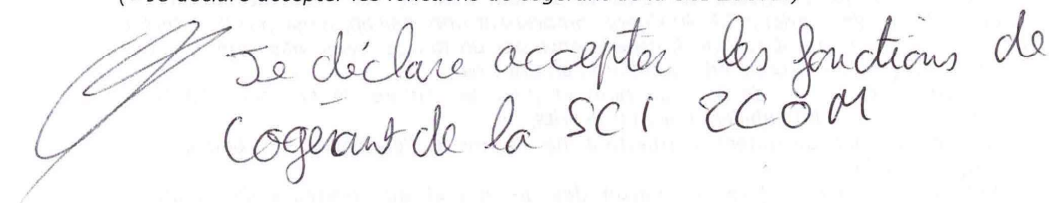 Je déclare accepter les fonctions de
Cogérant de la SCI 2COM